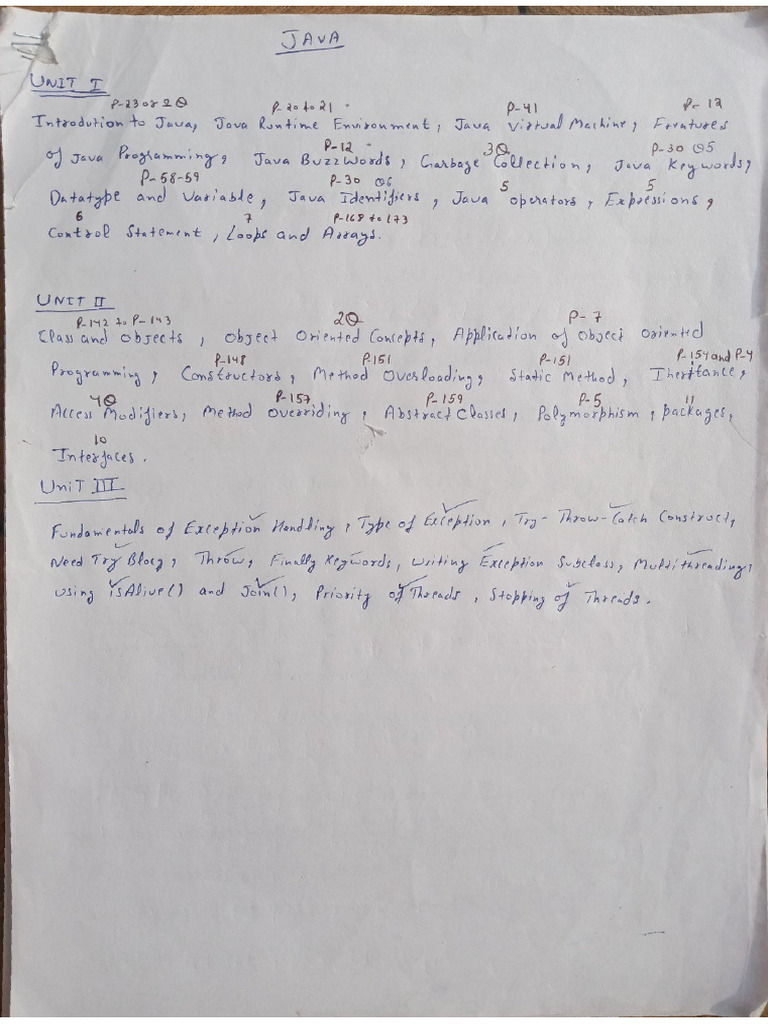 JAVA
UNIT I
P-23 or 2Q P-20 to 21 P-41 P-12
Introdution to Java, Java Runtime Environment, Java Virtual Machine, Freatures
P-12 3Q P-30 Q5
of Java Programming, Java Buzzwords, Garbage Collection, Java Keywords,
P-58-59 P-30 Q6 5 5
Datatype and Variable, Java Identifiers, Java operators, Expressions,
6 7 P-168 to 173
Control Statement, Loops and Arrays.
UNIT II
P-142 to P-143 2Q P-7
Class and Objects, Object Oriented Concepts, Application of Object Oriented
P-148 P-151 P-151 P-154 and P-4
Programming, Constructors, Method Overloading, Static Method, Inheritance,
4Q P-157 P-159 P-5 11
Access Modifiers, Method Overriding, Abstract Classes, Polymorphism, packages,
10
Interfaces.
UNIT III
Fundamentals of Exception Handling, Type of Exception, Try-Throw-Catch Construct,
Need Try Block, Throw, Finally Keywords, writing Exception Subclass, Multithreading,
using isAlive() and Join(), Priority of Threads, Stopping of Threads.